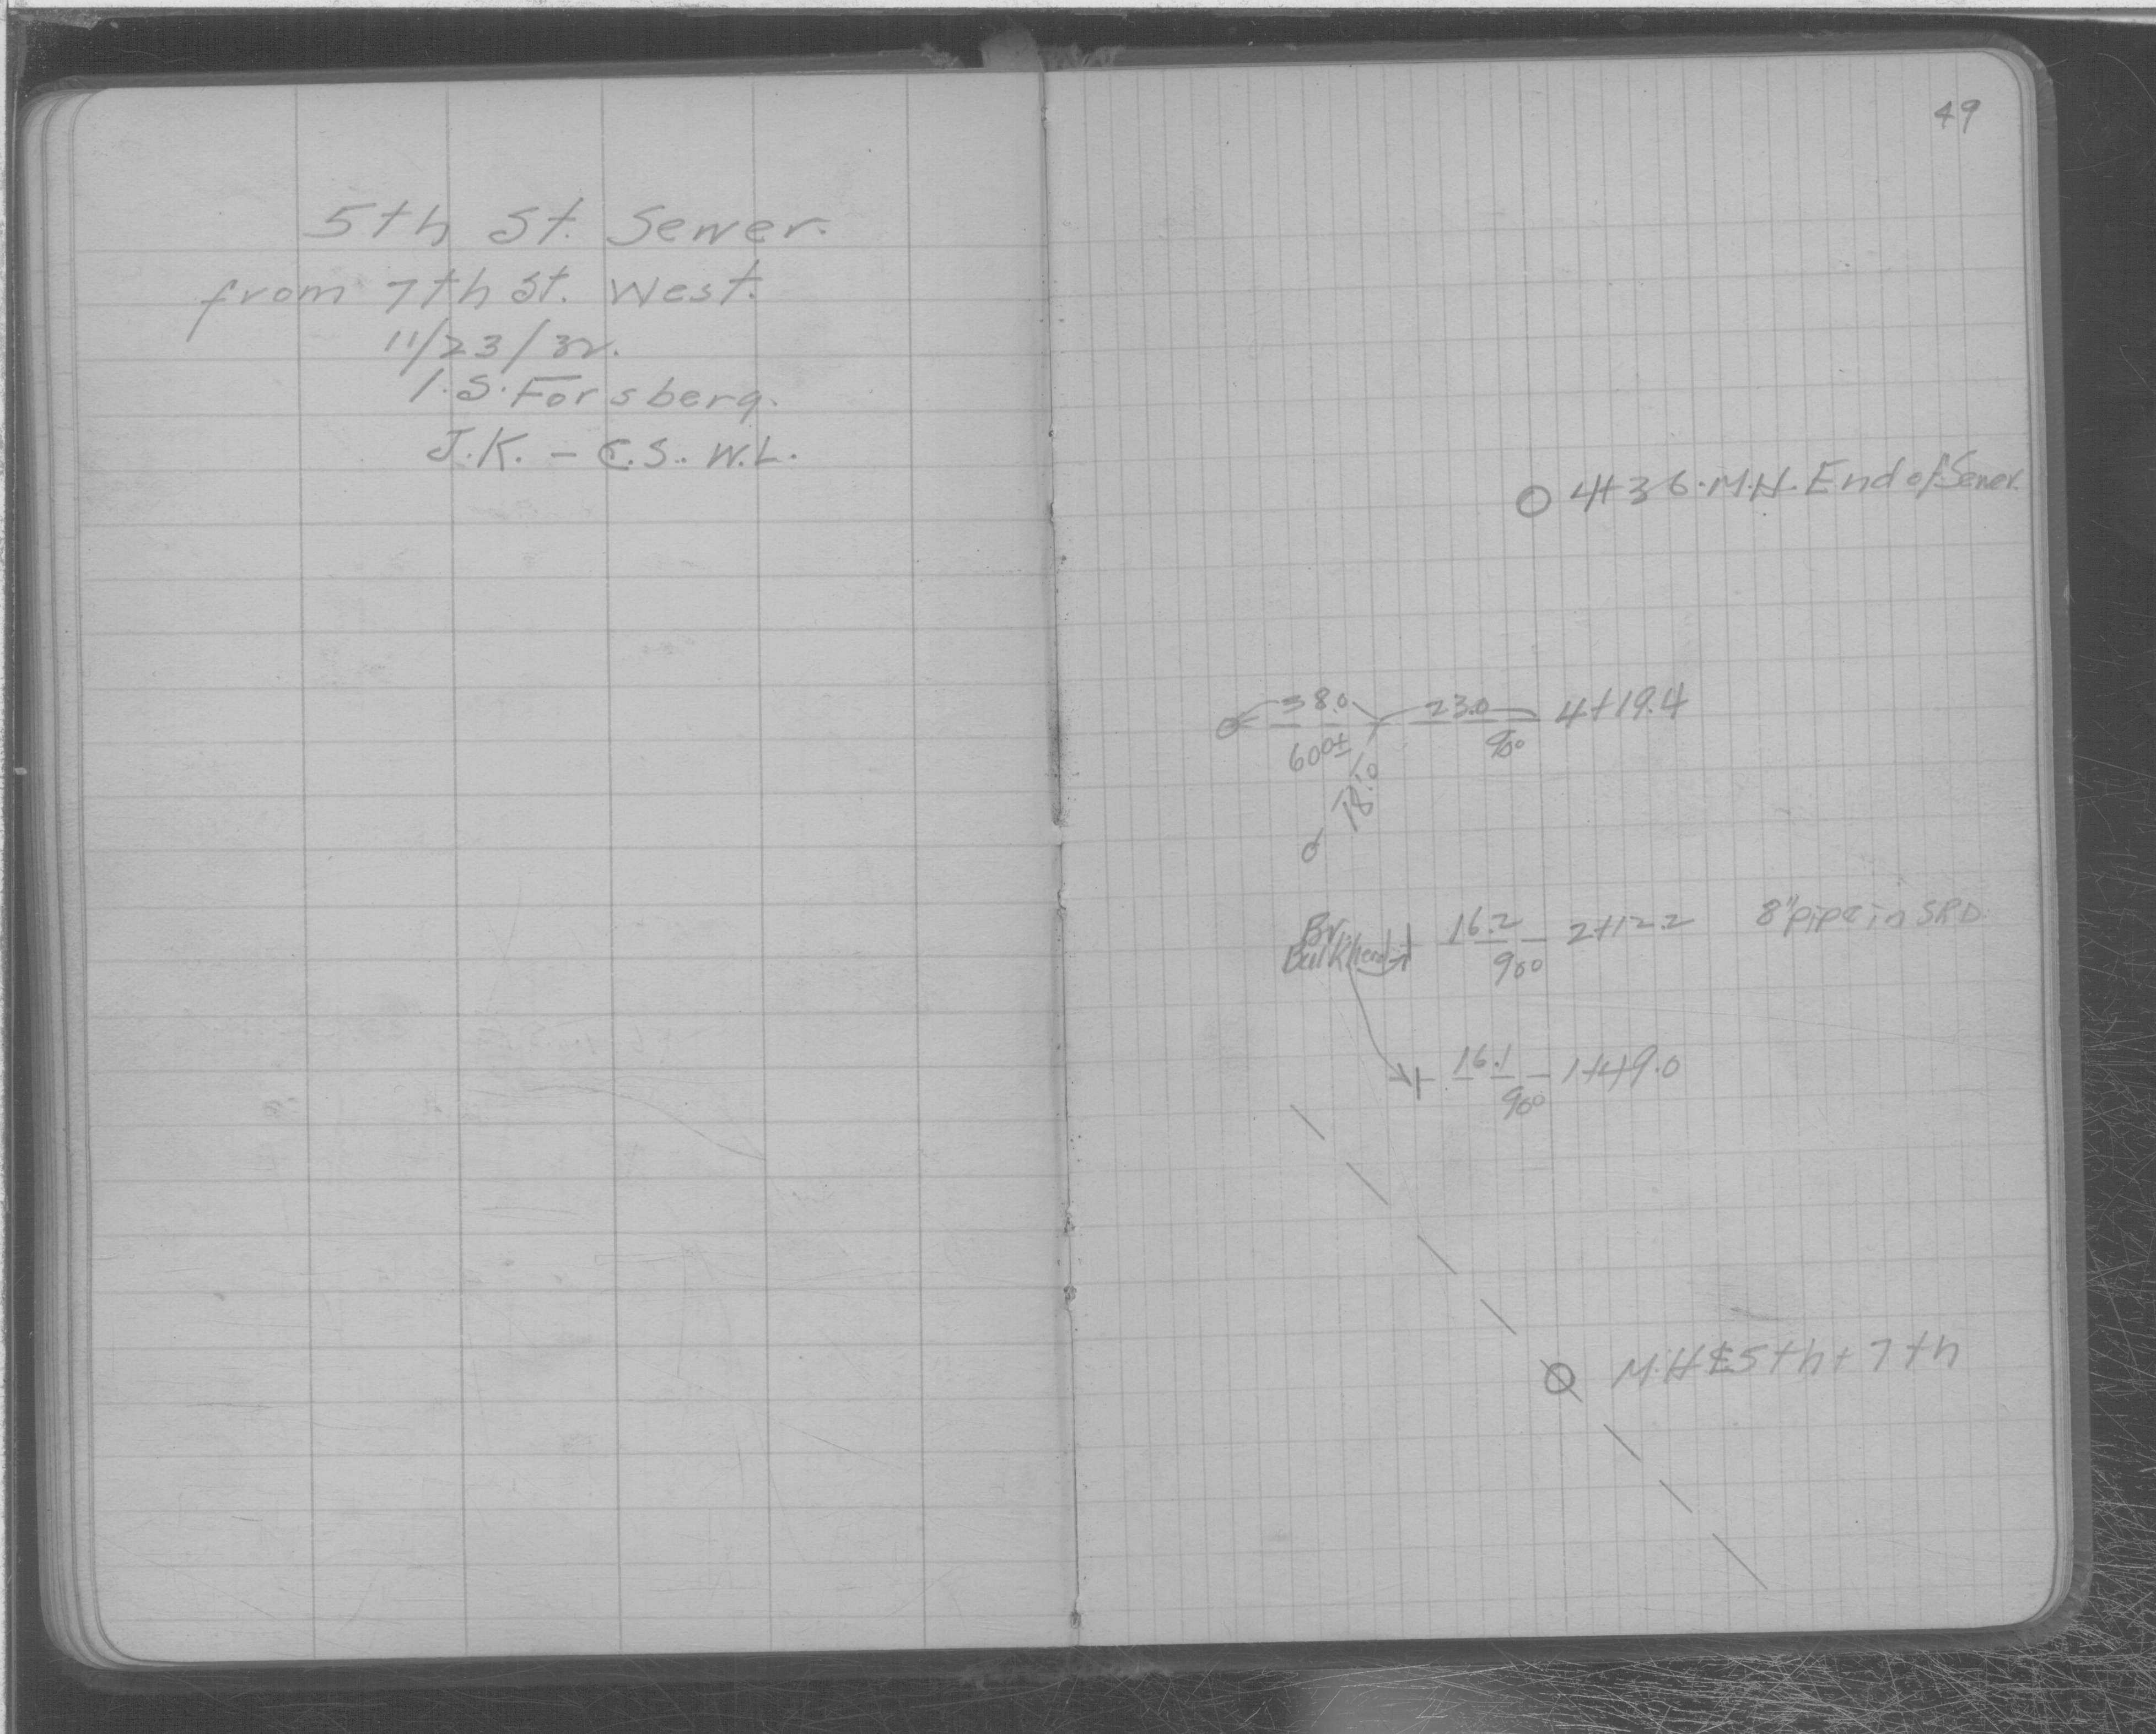 5th St. Sewer.
from 7th St. West.
11/23/32.
I.S. Forsberg.
J.K. - C.S. W.L.
49
4+36. M.H. End of Sewer.
38.0 23.0 4+19.4
60°± 90°
18.0
Br. 16.2 2+12.2 8" pipe in SRD.
Bulkhead 90°
16.1 1+49.0
90°
M.H. 5th + 7th